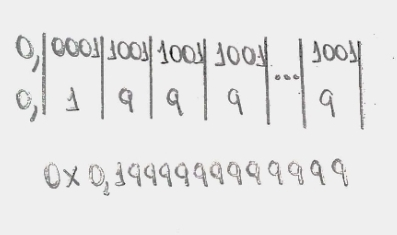 0,|0001|1001|1001|1001|...|1001|
0,|1|9|9|9|...|9|
0x0,1999999999999